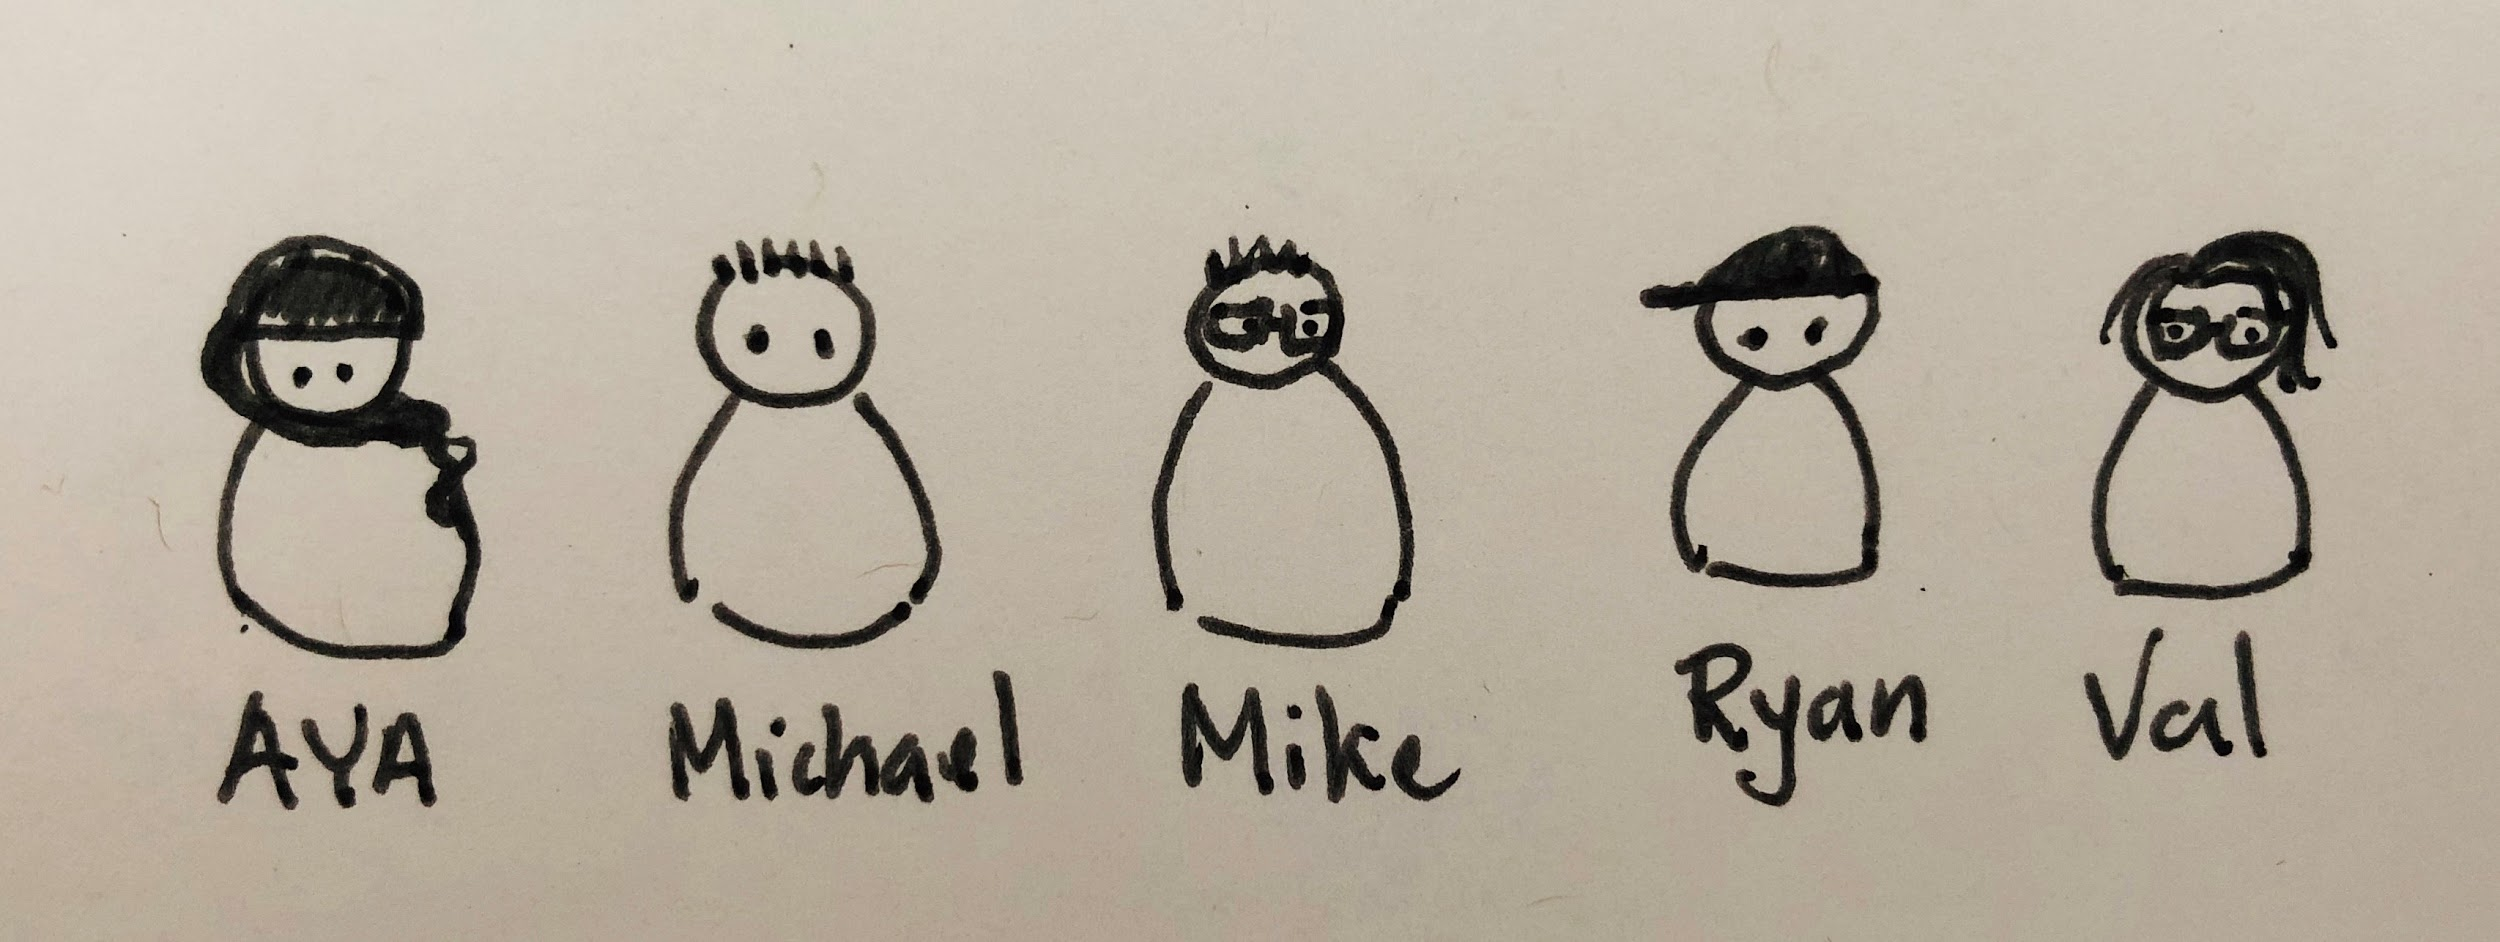 AYA Michael Mike Ryan Val